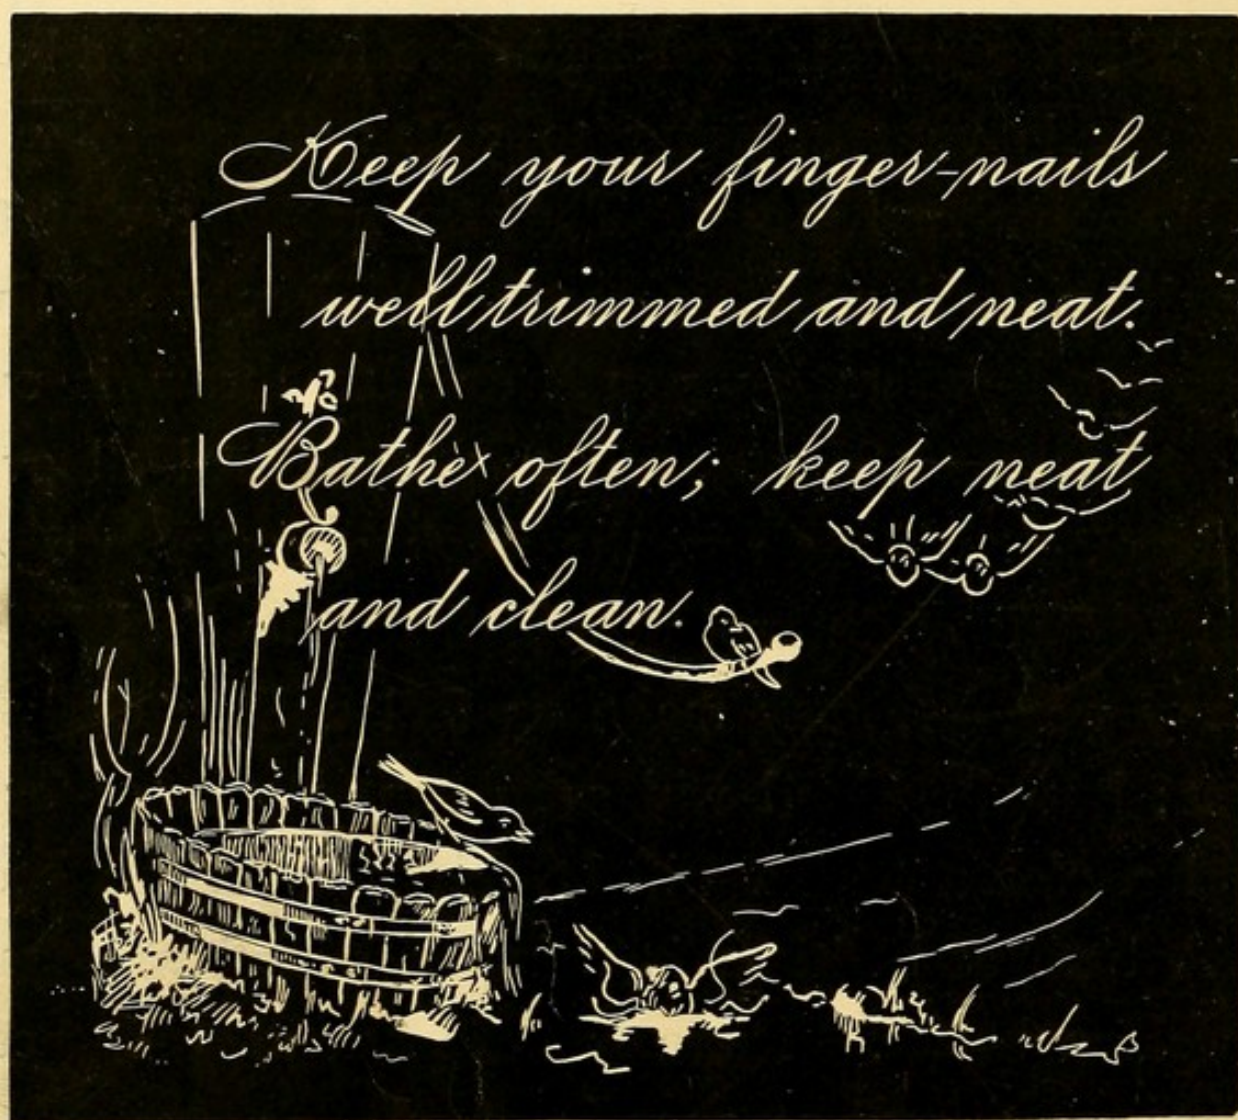 Keep your finger-nails
well trimmed and neat.
Bathe often; keep neat
and clean.